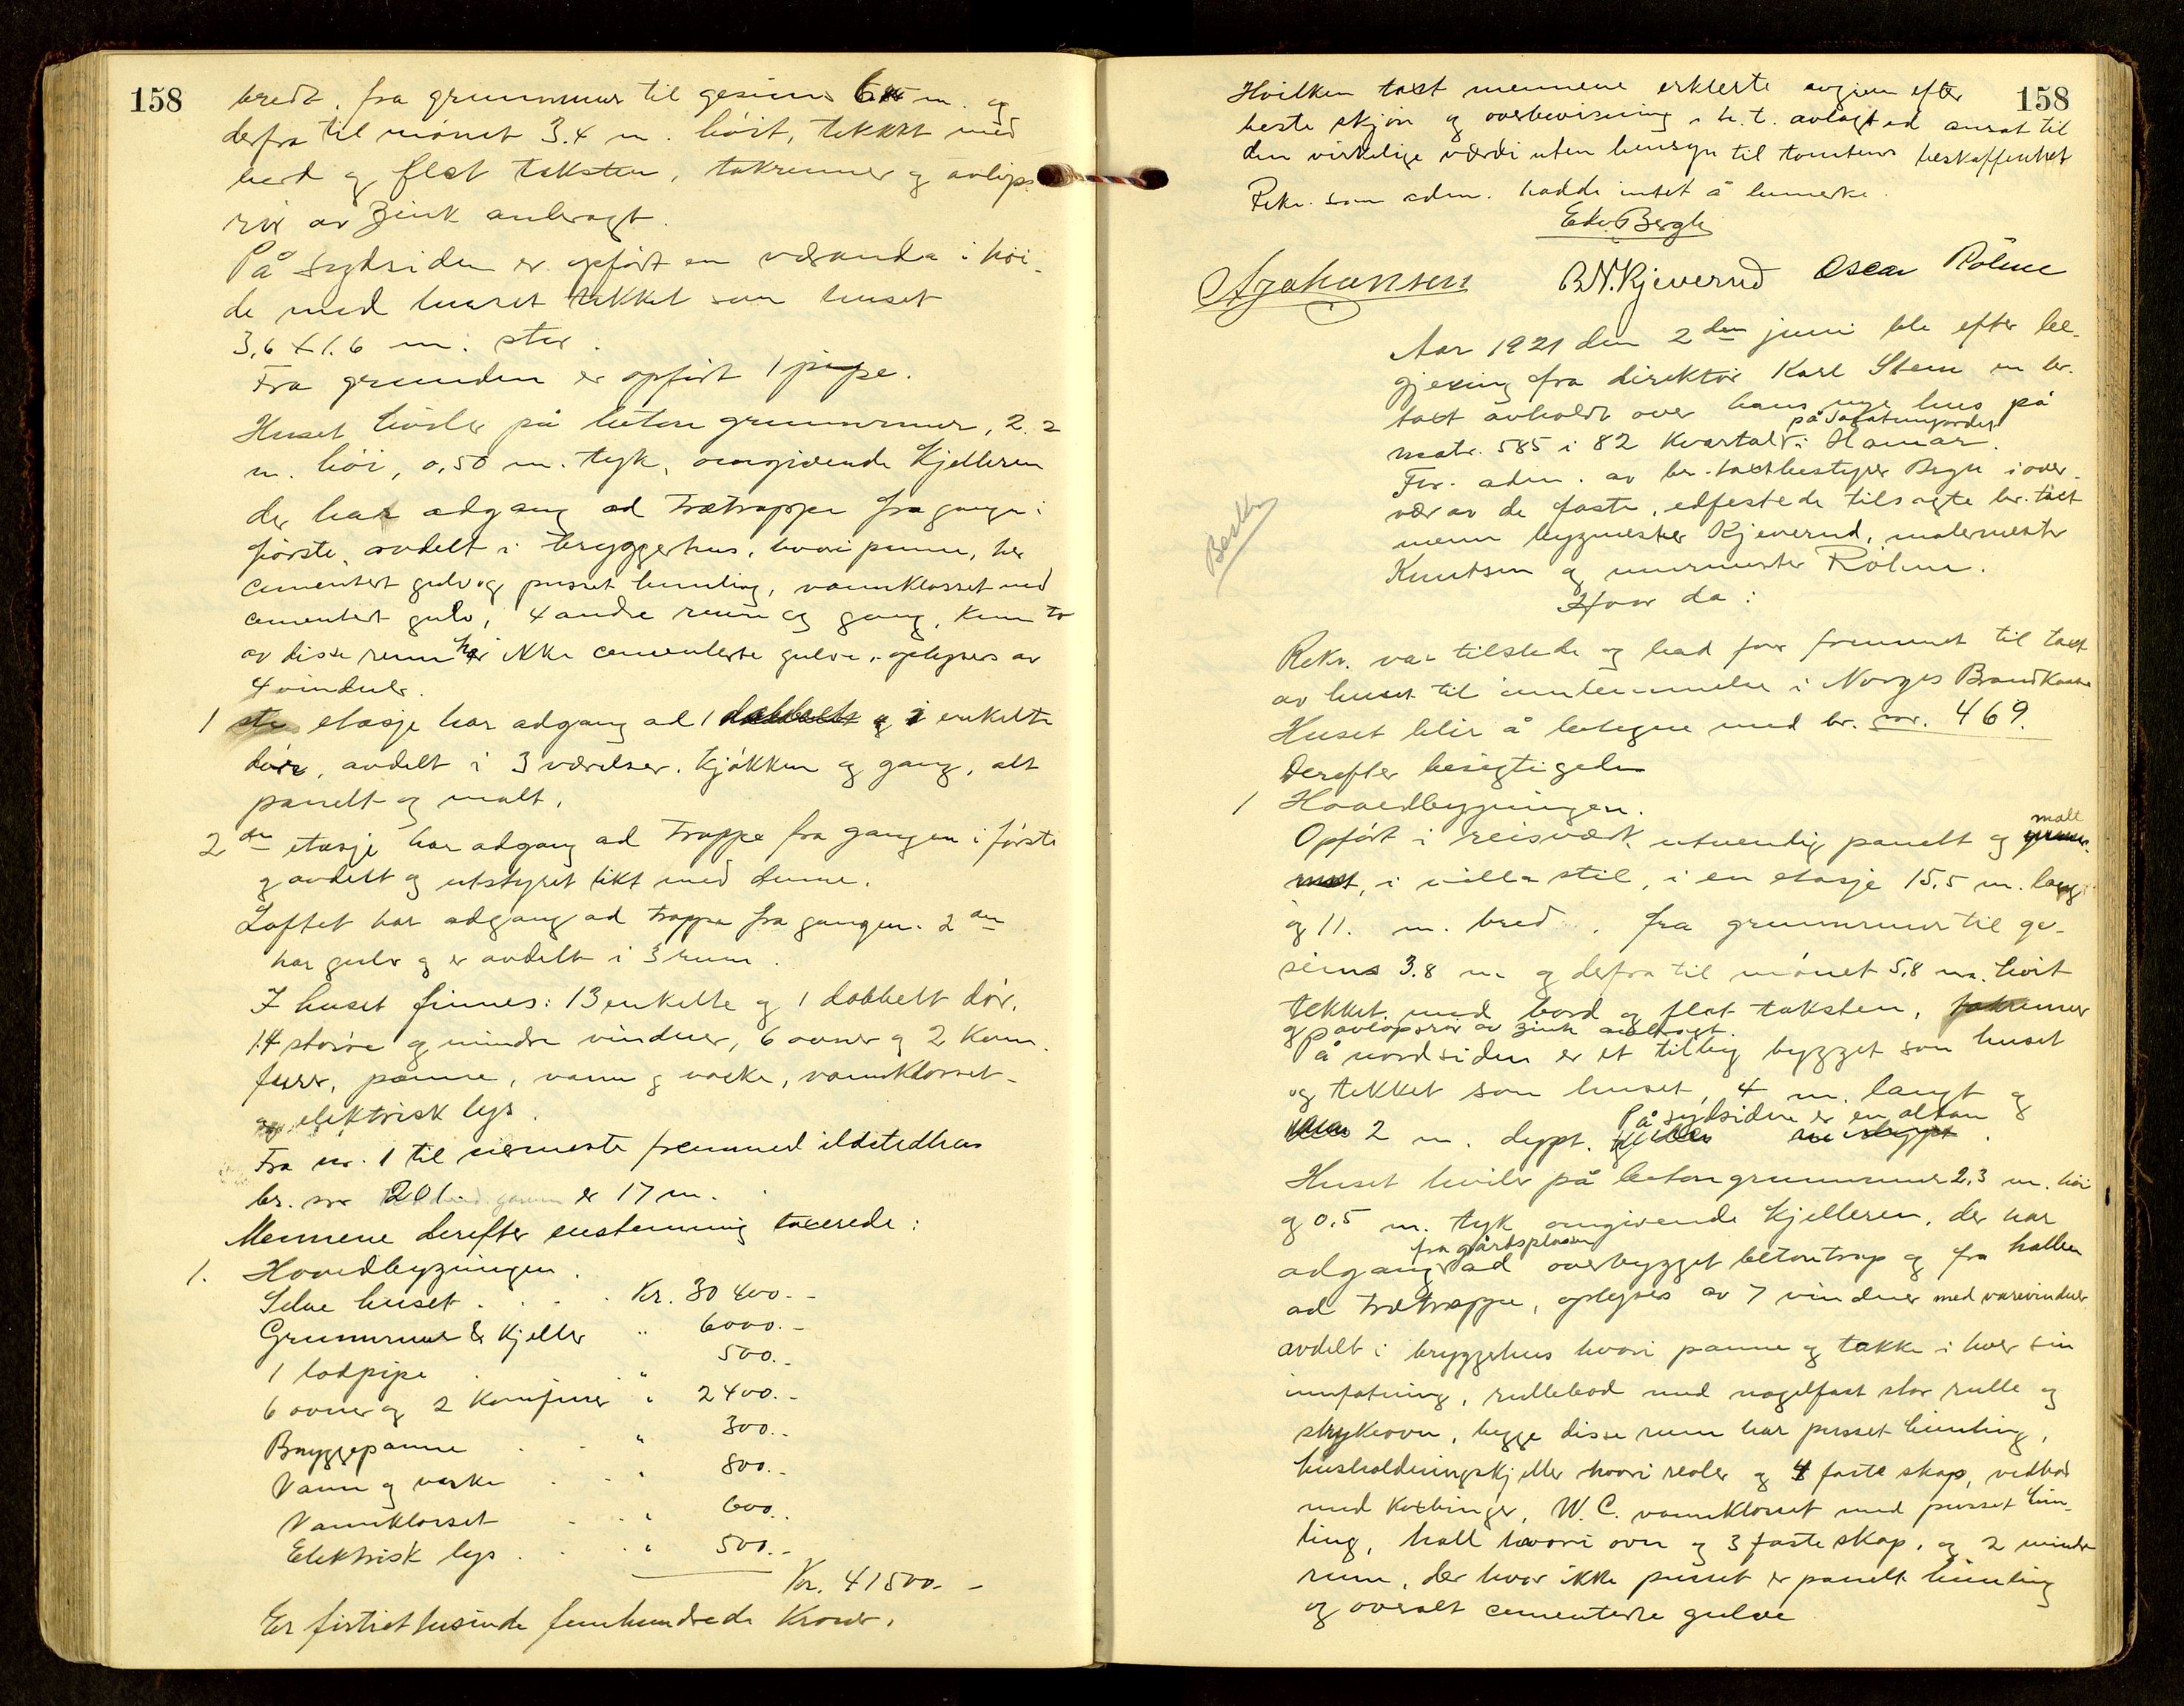 158
bredt, fra grunnmur til gesims 6 m. og
derfra til mønet 3.4 m høit, tekket med
bord og flat taksten, takrenner og avløps-
rør av zink anbragt.
På sydsiden er opført en veranda i høi-
de med huset tekket som huset
3,6 x 1.6 m. stor.
Fra grunden er opført 1 pipe.
Huset hviler på beton grunnmur, 2.2
m. høi, 0,50 m. tyk, omgivende Kjelleren
der har adgang ad trætrappe fra gangen i
første, avdelt i bryggerhus, hvori panne, har
cementert gulv og pusset himling, vannklosset med
cementert gulv, 4 andre rum og gang, kun to
av disse rum har ikke cementerte gulve, oplyses av
4 vinduer.
1 ste etasje har adgang ad 1 dobbelt og 1 enkelte
døre, avdelt i 3 værelser, kjøkken og gang, alt
panelt og malt.
2 den etasje har adgang ad trappe fra gangen i første
og avdelt og utstyret likt med denne.
Loftet har adgang ad trappe fra gangen i 2 den
har gulv og er avdelt i 3 rum.
I huset finnes: 13 enkelte og 1 dobbelt dør,
14 større og mindre vinduer, 6 ovner og 2 kom-
furer, panne, vann og vaske, vannklosset
og elektrisk lys.
Fra nr. 1 til nærmeste fremmed ildstedhus
br. nr 201. er 17 m.
Mennene derefter enstemmig taxerede:
1. Hovedbygningen.
Selve huset . . . . Kr. 30 400.-
Grunnmur & Kjeller " 6000.-
1 lodpipe . " 500.-
6 ovner og 2 Komfurer " 2400.-
Bryggepanne . . " 300.-
Vann og vaske . . " 800.-
Vannklosset . . " 600.-
Elektrisk lys . . " 500.-
Kr. 41500.-
Er firtiet tusinde femhundrede Kroner.
158
Hvilken taxt mennene erklerte avgiven efter
beste skjøn og overbevisning i h. t. avlagt ed ansat til
den virkelige værdi uten hensyn til tomtens beskaffenhet
Rekv. som adm. hadde intet å bemerke.
Edv. Bergh
A Johansen B.N. Kjeverud Oscar Röhne
Aar 1921 den 2den juni ble efter be-
gjæring fra direktør Karl Steen en br.
taxt avholdt over hans nye hus på
matr. 585 i 82 Kvartal i Hamar.
Forr. adm. av br. taxtbestyrer Bergh i over-
vær av de faste, edfestede tilsagte br. taxt
menn bygmester Kjeverud, malermester
Knutsen og murmester Röhne.
Bestbr
Hvor da:
Rekv. var tilstede og bad forr. fremmet til taxt
av huset til innlemmelse i Norges Brandkasse
Huset blir å betegne med br. nr. 469.
Derefter besigtigedes
1 Hovedbygningen.
malt
Opført i reisverk, utvendig panelt og
, i villa stil, i en etasje 15,5 m. lang
og 11. m. bred, fra grunnmur til ge-
sims 3.8 m og derfra til mønet 5,8 m. høit
tekket med bord og flat taksten, takrenner
og avløpsrör av zink anbragt.
På nordsiden er et tilbyg bygget som huset
og tekket som huset, 4 m. langt og
På sydsiden er en altan
2 m. dypt.
Huset hviler på betongrunnmur 2,3 m. høi
og 0,5 m. tyk omgivende Kjelleren, der har
fra gårdsplassen
adgang ad overbygget betontrap og fra hallen
ad trætrappe, oplyses av 7 vinduer med varevinduer
avdelt i bryggehus hvori panne og takke i hver sin
innfatning, rullebod med nagelfast stor rulle og
strykeovn, begge disse rum har pusset himling,
husholdningskjeller hvori reoler og 4 faste skap, vedbod
med koxbinger, W.C. vannklosset med pusset him-
ling, hall hvori ovn og 3 faste skap, og 2 mindre
rum, der hvor ikke pusset er panelt himling
og overalt cementerte gulve